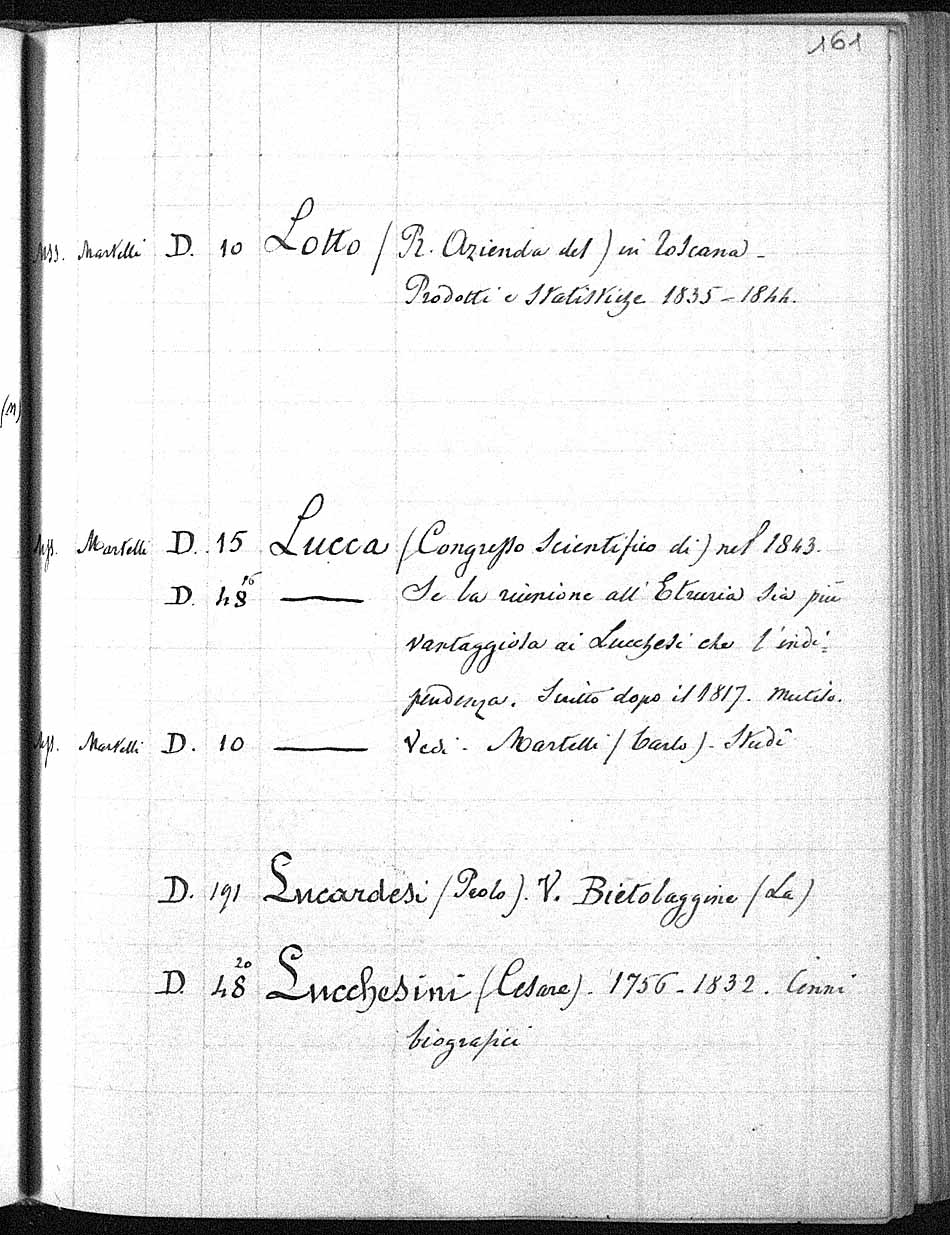 161
Mss. Martelli D. 10 Lotto (R. Azienda del) in Toscana -
Prodotti e Statistiche 1835-1844.
(M)
Mss. Martelli D. 15 Lucca (Congresso Scientifico di) nel 1843.
D. 48 16 —— Se la riunione all'Etruria sia più
vantaggiosa ai Lucchesi che l'indi=
pendenza. Scritto dopo il 1817. mutilo.
Mss. Martelli D. 10 —— Vedi - Martelli (Carlo) - Studi
D. 191 Lucardesi (Paolo). V. Bietolaggine (La)
D. 48 20 Lucchesini (Cesare). 1756-1832. Cenni
biografici